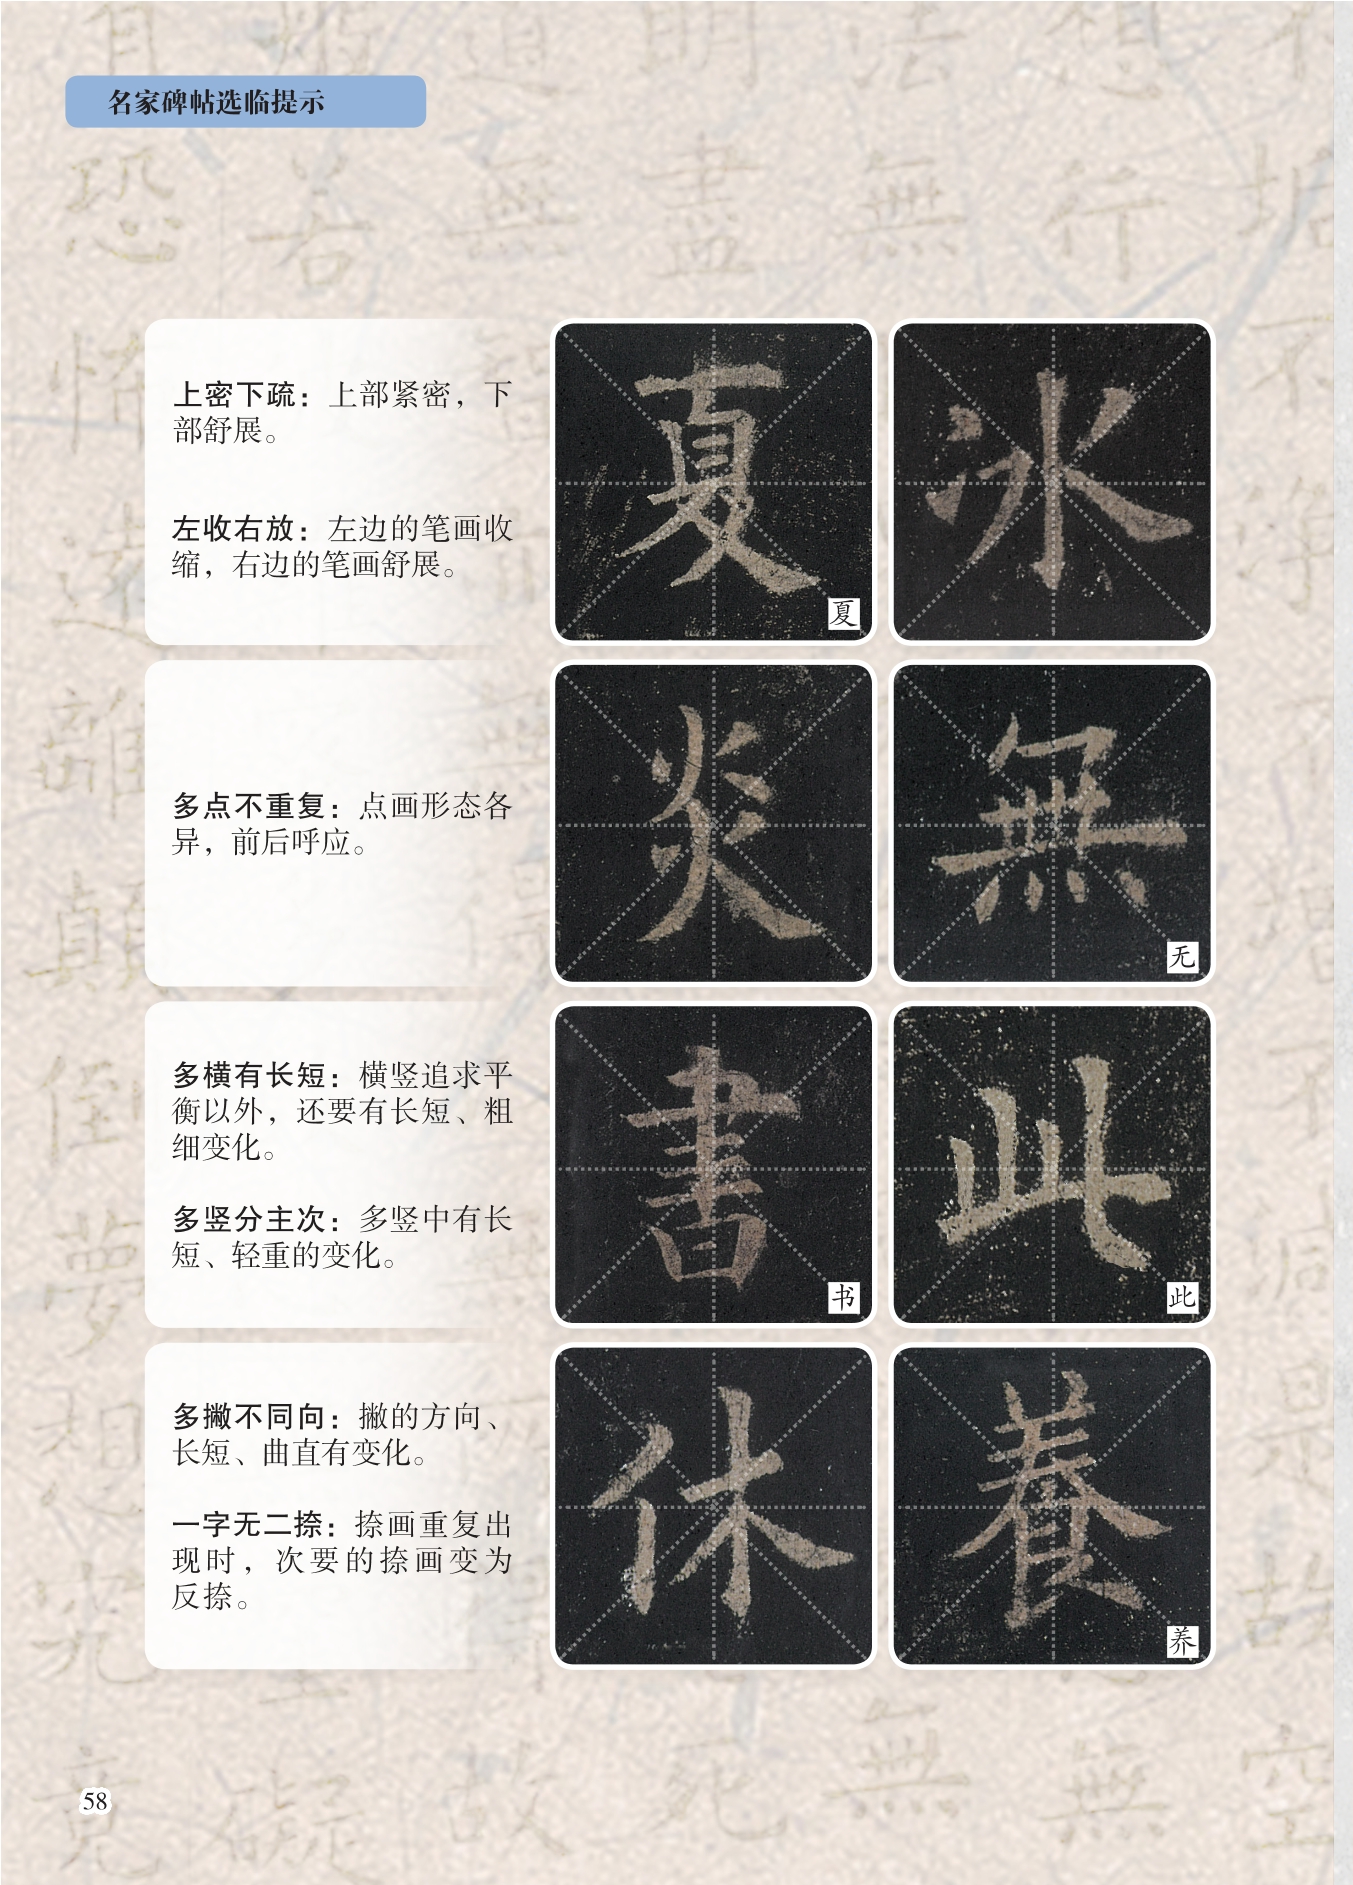 名家碑帖选临提示
上密下疏：上部紧密，下
部舒展。
左收右放：左边的笔画收
缩，右边的笔画舒展。
夏
冰
夏
多点不重复：点画形态各
异，前后呼应。
炎
無
无
多横有长短：横竖追求平
衡以外，还要有长短、粗
细变化。
多竖分主次：多竖中有长
短、轻重的变化。
書
此
书
此
多撇不同向：撇的方向、
长短、曲直有变化。
一字无二捺：捺画重复出
现时，次要的捺画变为
反捺。
休
養
养
58